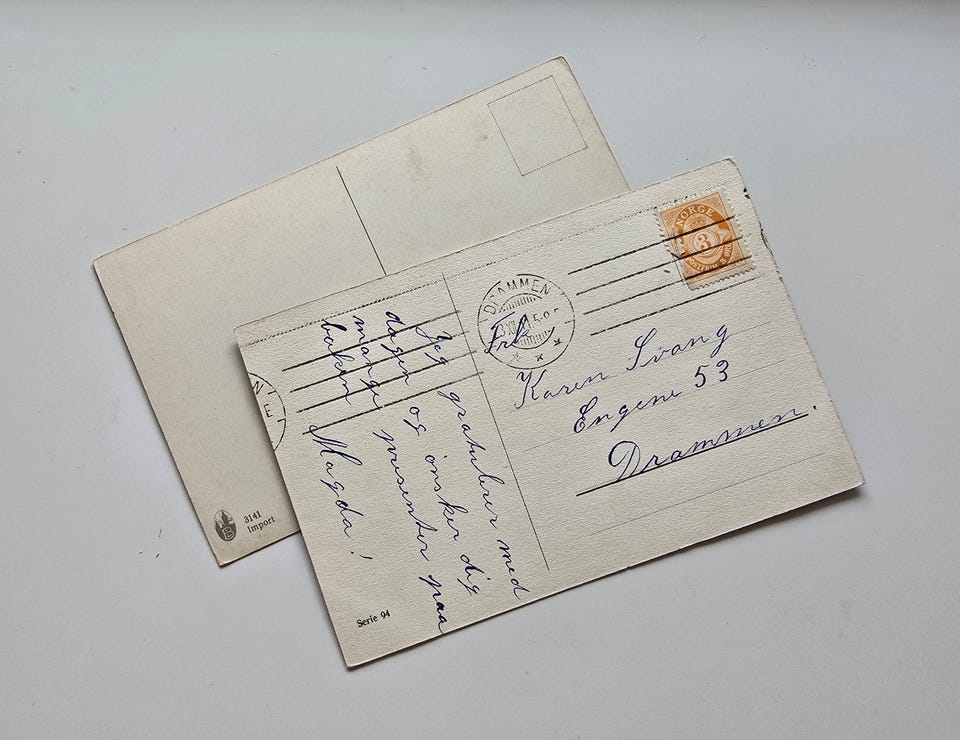 3141
Import
NORGE
3
DRAMMEN
Frk
Karen Svang
Engene 53
Drammen.
Jeg gratulerer med
dagen og önsker dig
mange presenter paa
baken
Magda!
Serie 94